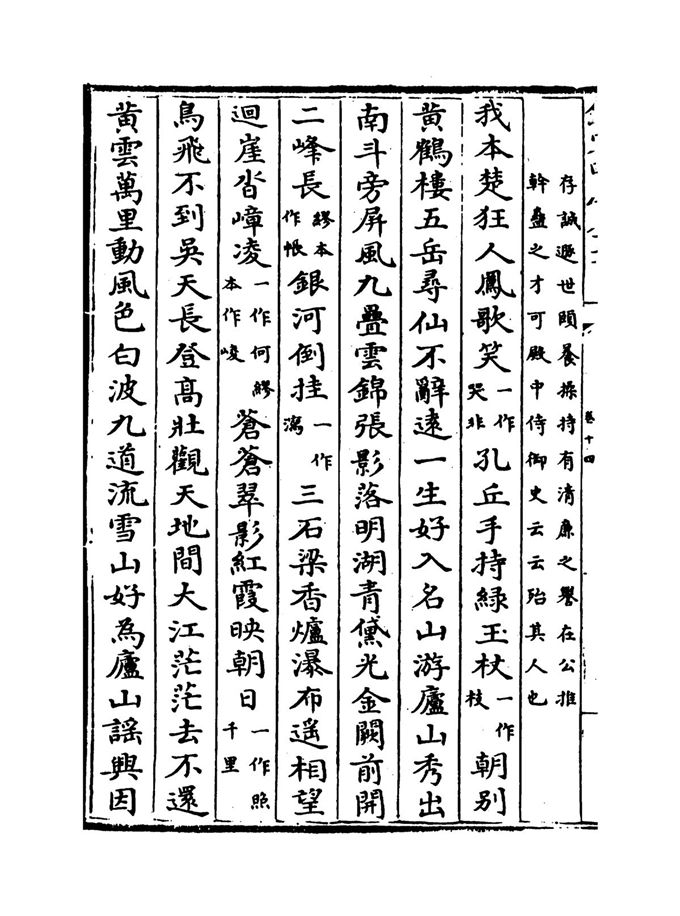 卷十四
存誠遯世頤養操持有清廉之譽在公推
幹蠱之才可殿中侍御史云云殆其人也
我本楚狂人鳳歌笑一作哭非孔丘手持綠玉杖一作枝朝別
黄鶴樓五岳尋仙不辭遠一生好入名山游廬山秀出
南斗旁屏風九疊雲錦張影落明湖青黛光金闕前開
二峰長繆本作帳銀河倒挂一作瀉三石梁香爐瀑布遥相望
迴崖沓嶂凌一作何繆本作崚蒼蒼翠影紅霞映朝日一作照千里
鳥飛不到吳天長登高壯觀天地間大江茫茫去不還
黄雲萬里動風色白波九道流雪山好為廬山謡興因